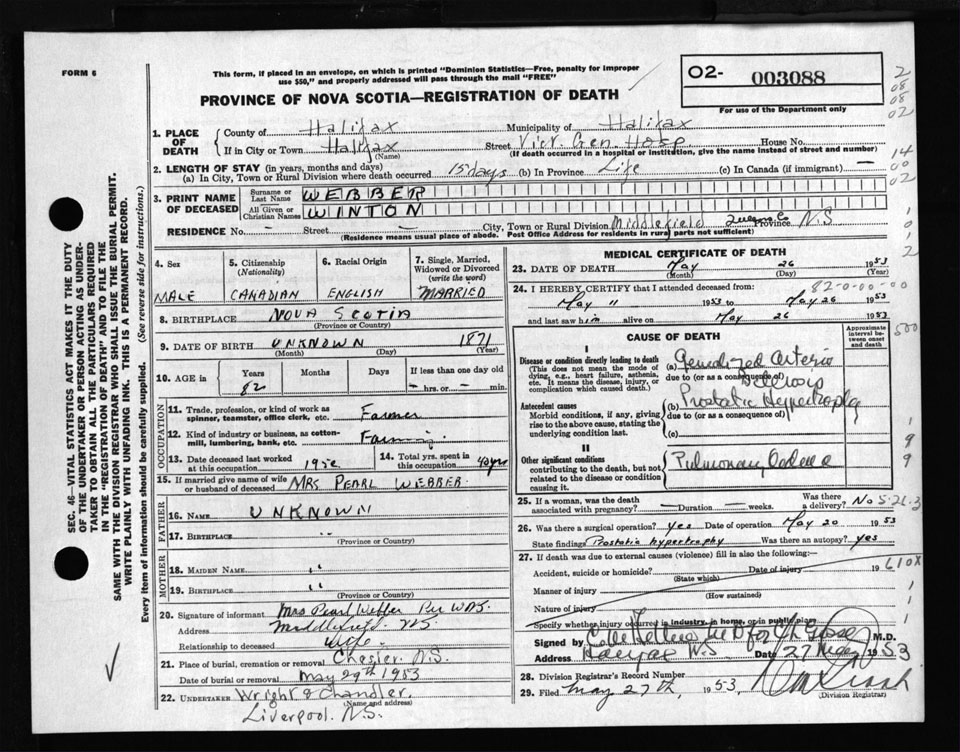 FORM 6
This form, if placed in an envelope, on which is printed "Dominion Statistics—Free, penalty for improper
use $50," and properly addressed will pass through the mail "FREE"
PROVINCE OF NOVA SCOTIA—REGISTRATION OF DEATH
O2- 003088
For use of the Department only
2
08
08
02
1. PLACE OF DEATH { County of Halifax Municipality of Halifax
If in City or Town Halifax (Name) Street Vict. Gen. Hosp. House No.
(If death occurred in a hospital or institution, give the name instead of street and number)
14
00
02
2. LENGTH OF STAY (in years, months and days)
(a) In City, Town or Rural Division where death occurred 15 days (b) In Province Life (c) In Canada (if immigrant) —
3. PRINT NAME OF DECEASED { Surname or Last Name WEBBER
All Given or Christian Names WINTON
RESIDENCE No. — Street — City, Town or Rural Division Middlefield Queens Co Province N.S
(Residence means usual place of abode. Post Office Address for residents in rural parts not sufficient)
4. Sex MALE
5. Citizenship (Nationality) CANADIAN
6. Racial Origin ENGLISH
7. Single, Married, Widowed or Divorced (write the word) MARRIED
8. BIRTHPLACE NOVA SCOTIA
(Province or Country)
9. DATE OF BIRTH UNKNOWN 1871
(Month) (Day) (Year)
10. AGE in Years Months Days If less than one day old
82 — hrs. or — min.
OCCUPATION
11. Trade, profession, or kind of work as spinner, teamster, office clerk, etc. Farmer
12. Kind of industry or business, as cotton-mill, lumbering, bank, etc. Farming
13. Date deceased last worked at this occupation
14. Total yrs. spent in this occupation 40 yrs
15. If married give name of wife or husband of deceased MRS PEARL WEBBER
FATHER
16. NAME UNKNOWN
17. BIRTHPLACE ''
(Province or Country)
MOTHER
18. MAIDEN NAME ''
19. BIRTHPLACE ''
(Province or Country)
20. Signature of informant Mrs Pearl Webber Per
Address Middlefield N.S
Relationship to deceased Wife.
21. Place of burial, cremation or removal Chester. N.S.
Date of burial or removal May 29th 1953
22. UNDERTAKER Wright & Chandler.
(Name and address)
Liverpool. N.S.
MEDICAL CERTIFICATE OF DEATH
23. DATE OF DEATH May 26 1953
(Month) (Day) (Year)
24. I HEREBY CERTIFY that I attended deceased from: 82-0-00-00
May 11 1953 to May 26 1953
and last saw him alive on May 26 1953
CAUSE OF DEATH
Approximate interval between onset and death
500
I
Disease or condition directly leading to death
(This does not mean the mode of dying, e.g., heart failure, asthenia, etc. It means the disease, injury, or complication which caused death.)
(a) Generalized Arterio
due to (or as a consequence of)
Sclerosis
Antecedent causes
Morbid conditions, if any, giving rise to the above cause, stating the underlying condition last.
(b) Prostatic Hypertrophy
due to (or as a consequence of)
(c)
II
Other significant conditions
contributing to the death, but not related to the disease or condition causing it.
Pulmonary Oedema
1
9
9
25. If a woman, was the death associated with pregnancy? — Duration — weeks. Was there a delivery? No
26. Was there a surgical operation? yes Date of operation May 20 1953
State findings Prostatic hypertrophy Was there an autopsy? yes
27. If death was due to external causes (violence) fill in also the following:—
Accident, suicide or homicide? Date of injury 19 610X
(State which)
Manner of injury
(How sustained)
Nature of injury
Specify whether injury occurred in industry, in home, or in public place
Signed by M.D.
Address Halifax N.S Date 27 May 1953
28. Division Registrar's Record Number
29. Filed May 27th, 1953
(Division Registrar)
SEC. 46—VITAL STATISTICS ACT MAKES IT THE DUTY
OF THE UNDERTAKER OR PERSON ACTING AS UNDERTAKER TO OBTAIN ALL THE PARTICULARS REQUIRED
IN THE "REGISTRATION OF DEATH" AND TO FILE THE
SAME WITH THE DIVISION REGISTRAR WHO SHALL ISSUE THE BURIAL PERMIT.
WRITE PLAINLY WITH UNFADING INK. THIS IS A PERMANENT RECORD.
Every item of information should be carefully supplied. (See reverse side for instructions.)